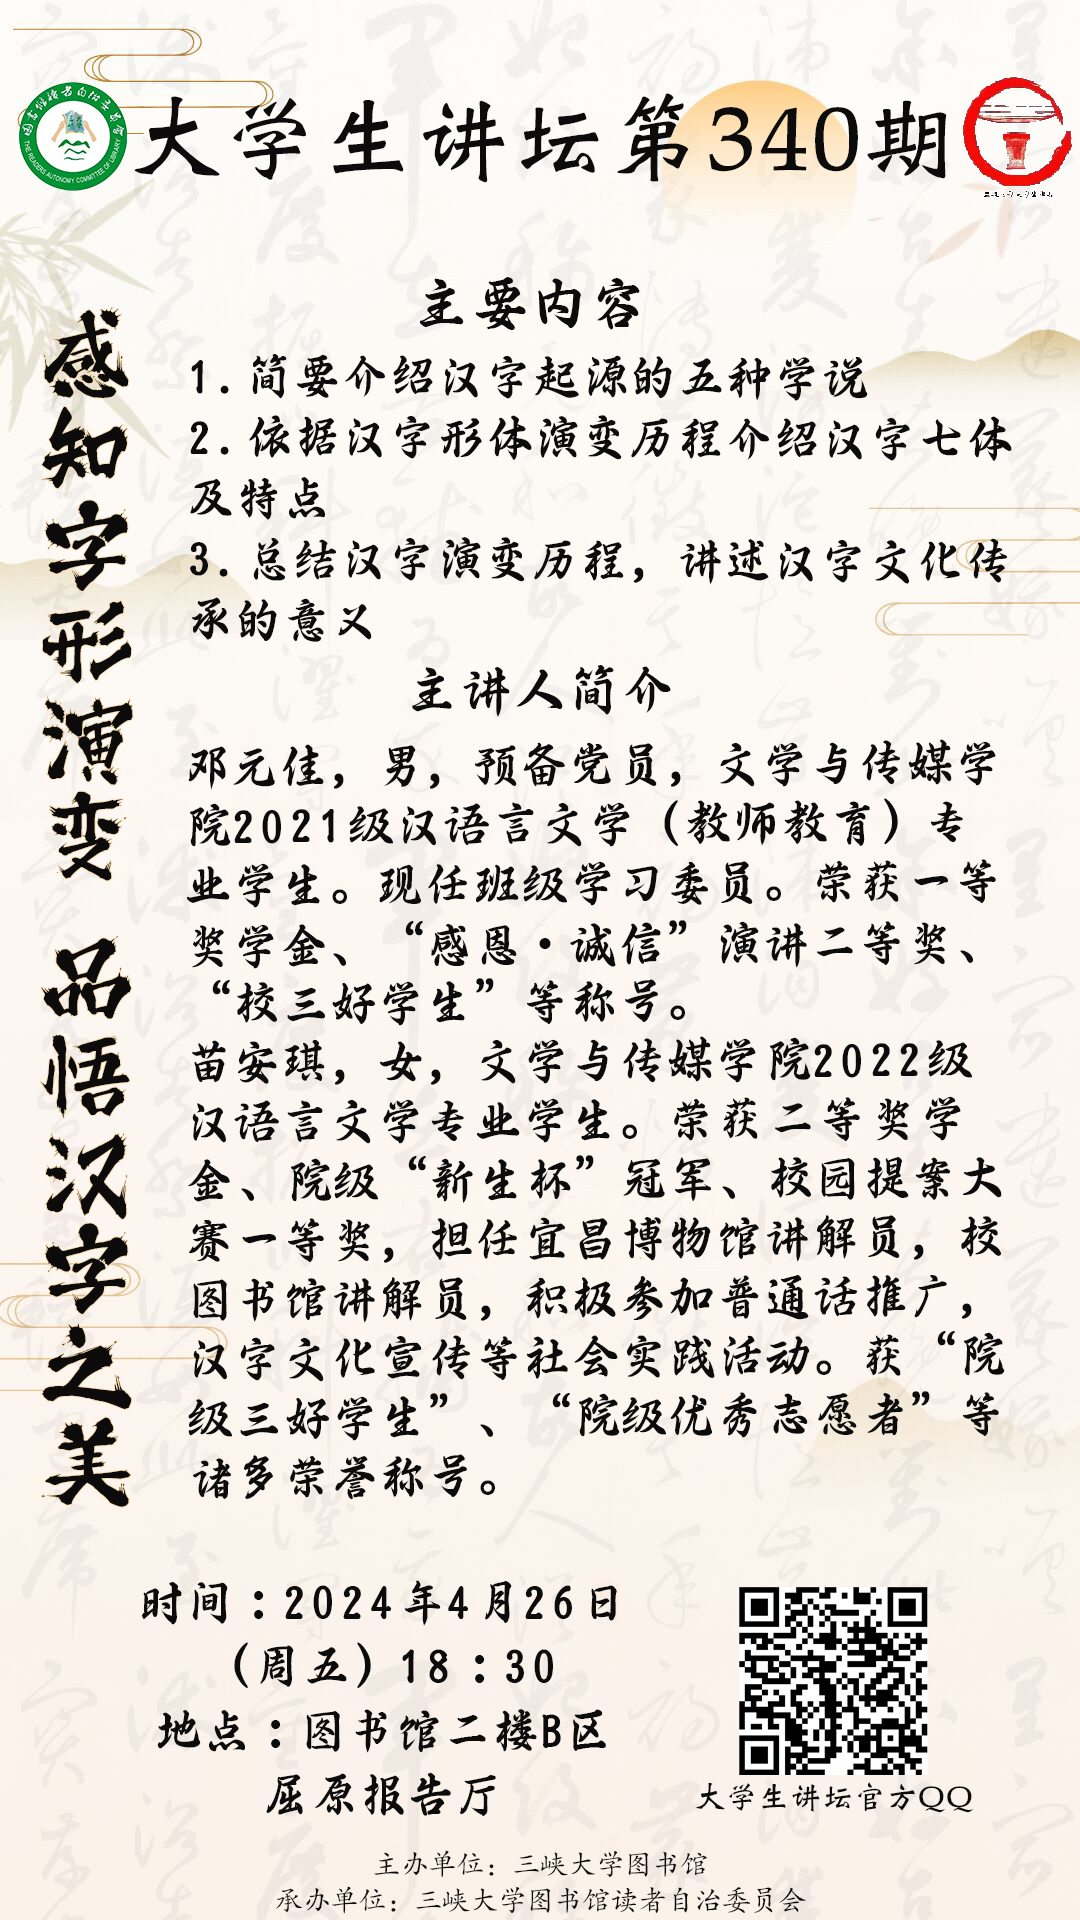 大学生讲坛第340期
图书馆读者自治委员会
THE READERS AUTONOMY COMMITTEE OF LIBRARY
感知字形演变 品悟汉字之美
主要内容
1.简要介绍汉字起源的五种学说
2.依据汉字形体演变历程介绍汉字七体
及特点
3.总结汉字演变历程，讲述汉字文化传
承的意义
主讲人简介
邓元佳，男，预备党员，文学与传媒学
院2021级汉语言文学（教师教育）专
业学生。现任班级学习委员。荣获一等
奖学金、“感恩·诚信”演讲二等奖、
“校三好学生”等称号。
苗安琪，女，文学与传媒学院2022级
汉语言文学专业学生。荣获二等奖学
金、院级“新生杯”冠军、校园提案大
赛一等奖，担任宜昌博物馆讲解员，校
图书馆讲解员，积极参加普通话推广，
汉字文化宣传等社会实践活动。获“院
级三好学生”、“院级优秀志愿者”等
诸多荣誉称号。
时间：2024年4月26日
（周五）18：30
地点：图书馆二楼B区
屈原报告厅
大学生讲坛官方QQ
主办单位：三峡大学图书馆
承办单位：三峡大学图书馆读者自治委员会